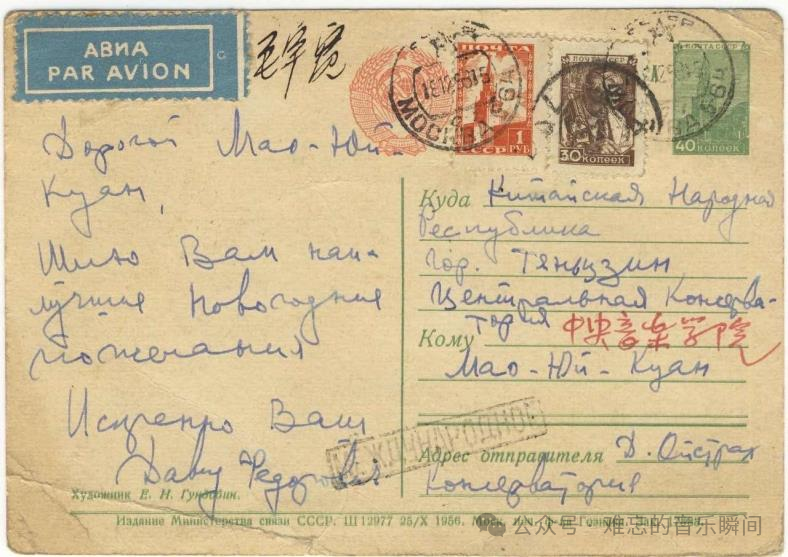 АВИА
PAR AVION
毛宇宽
ПОЧТА
СССР
1
РУБ
ПОЧТА СССР
30 КОПЕЕК
ПОЧТА СССР
40 КОПЕЕК
МОСКВА
Дорогой Мао-Юй-
Куан,
Шлю Вам наи-
лучшие Новогодние
пожелания
Искренно Ваш
Давид
Художник Е. И. Гундобин.
Куда Китайская Народная
Республика
гор. Тяньцзин
Центральная Консерва-
тория 中央音乐学院
Кому
Мао-Юй-Куан
МЕЖДУНАРОДНОЕ
Адрес отправителя Д. Ойстрах
Консерватория
Издание Министерства связи СССР. Ш 12977 25/X 1956. Моск. тип. ф-ка Гознака. Зак.
公众号 · 难忘的音乐瞬间